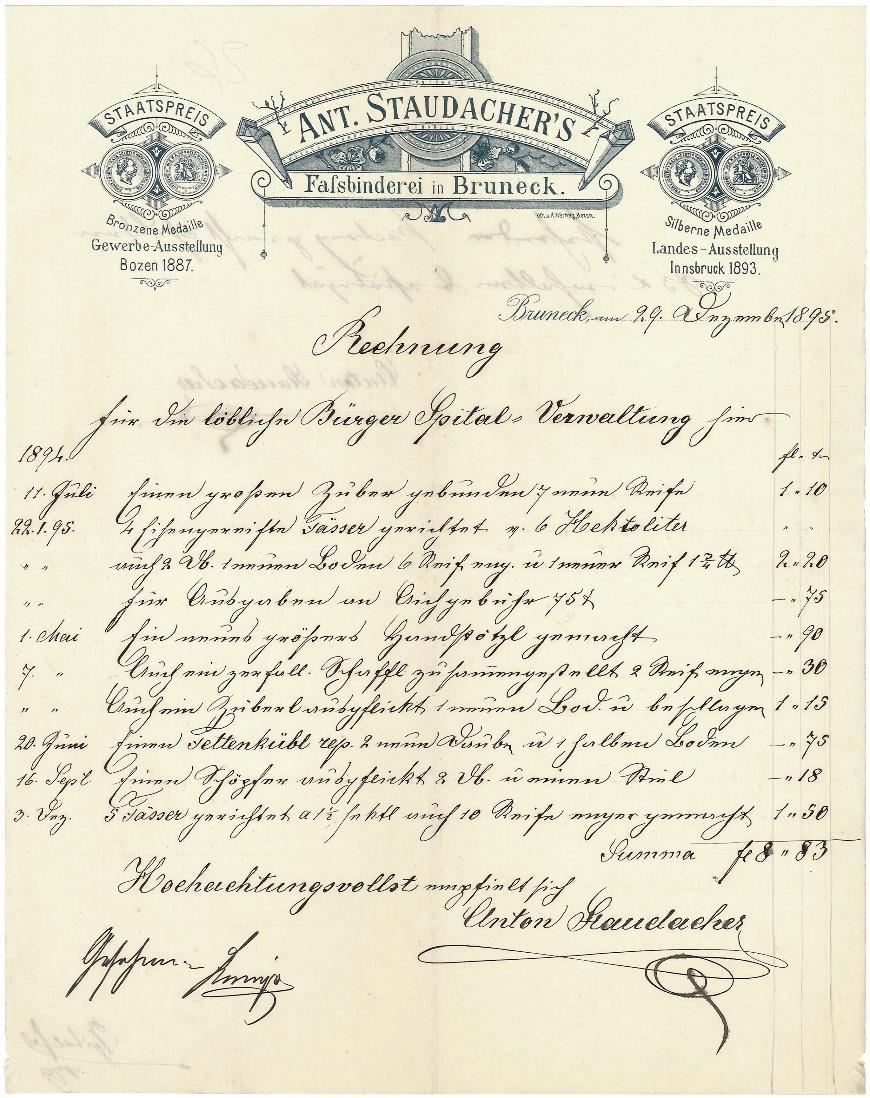 STAATSPREIS
Bronzene Medaille
Gewerbe-Ausstellung
Bozen 1887.
ANT. STAUDACHER'S
Faſsbinderei in Bruneck.
STAATSPREIS
Silberne Medaille
Landes-Ausstellung
Innsbruck 1893.
Bruneck, am 29. Dezember 1895.
Rechnung
für die löbliche Bürger Spital-Verwaltung hier
1894. fl.
11. Juli Einen großen Zuber gebunden 7 neue Reife 1 " 10
22.1.95. 4 Eisengereifte Fässer gerichtet v. 6 Hektoliter " "
" " auch 2 Db. 1 neuen Boden 6 Reif eng. u 1 neuer Reif 2 " 20
" " für Ausgaben an Aichgebühr 75 — " 75
1. Mai Ein neues größers Handstötzl gemacht — " 90
7. " Auch ein zerfall. Schaffl zusammengestellt 2 Reif enge — " 30
" " Auch ein Zuberl auspflickt 1 neuen Bod. u beschlagen 1 " 15
20. Juni Einen Fettenkübl rep. 2 neue Daube u 1 halben Boden — " 75
16. Sept Einen Schöpfer auspflickt 2 Db. u einen Stiel — " 18
3. Dez. 5 Fässer gerichtet a 1½ hektl auch 10 Reife enger gemacht 1 " 50
Summa fl 8 " 83
Hochachtungsvollst empfielt sich
Anton Staudacher
Gesehen